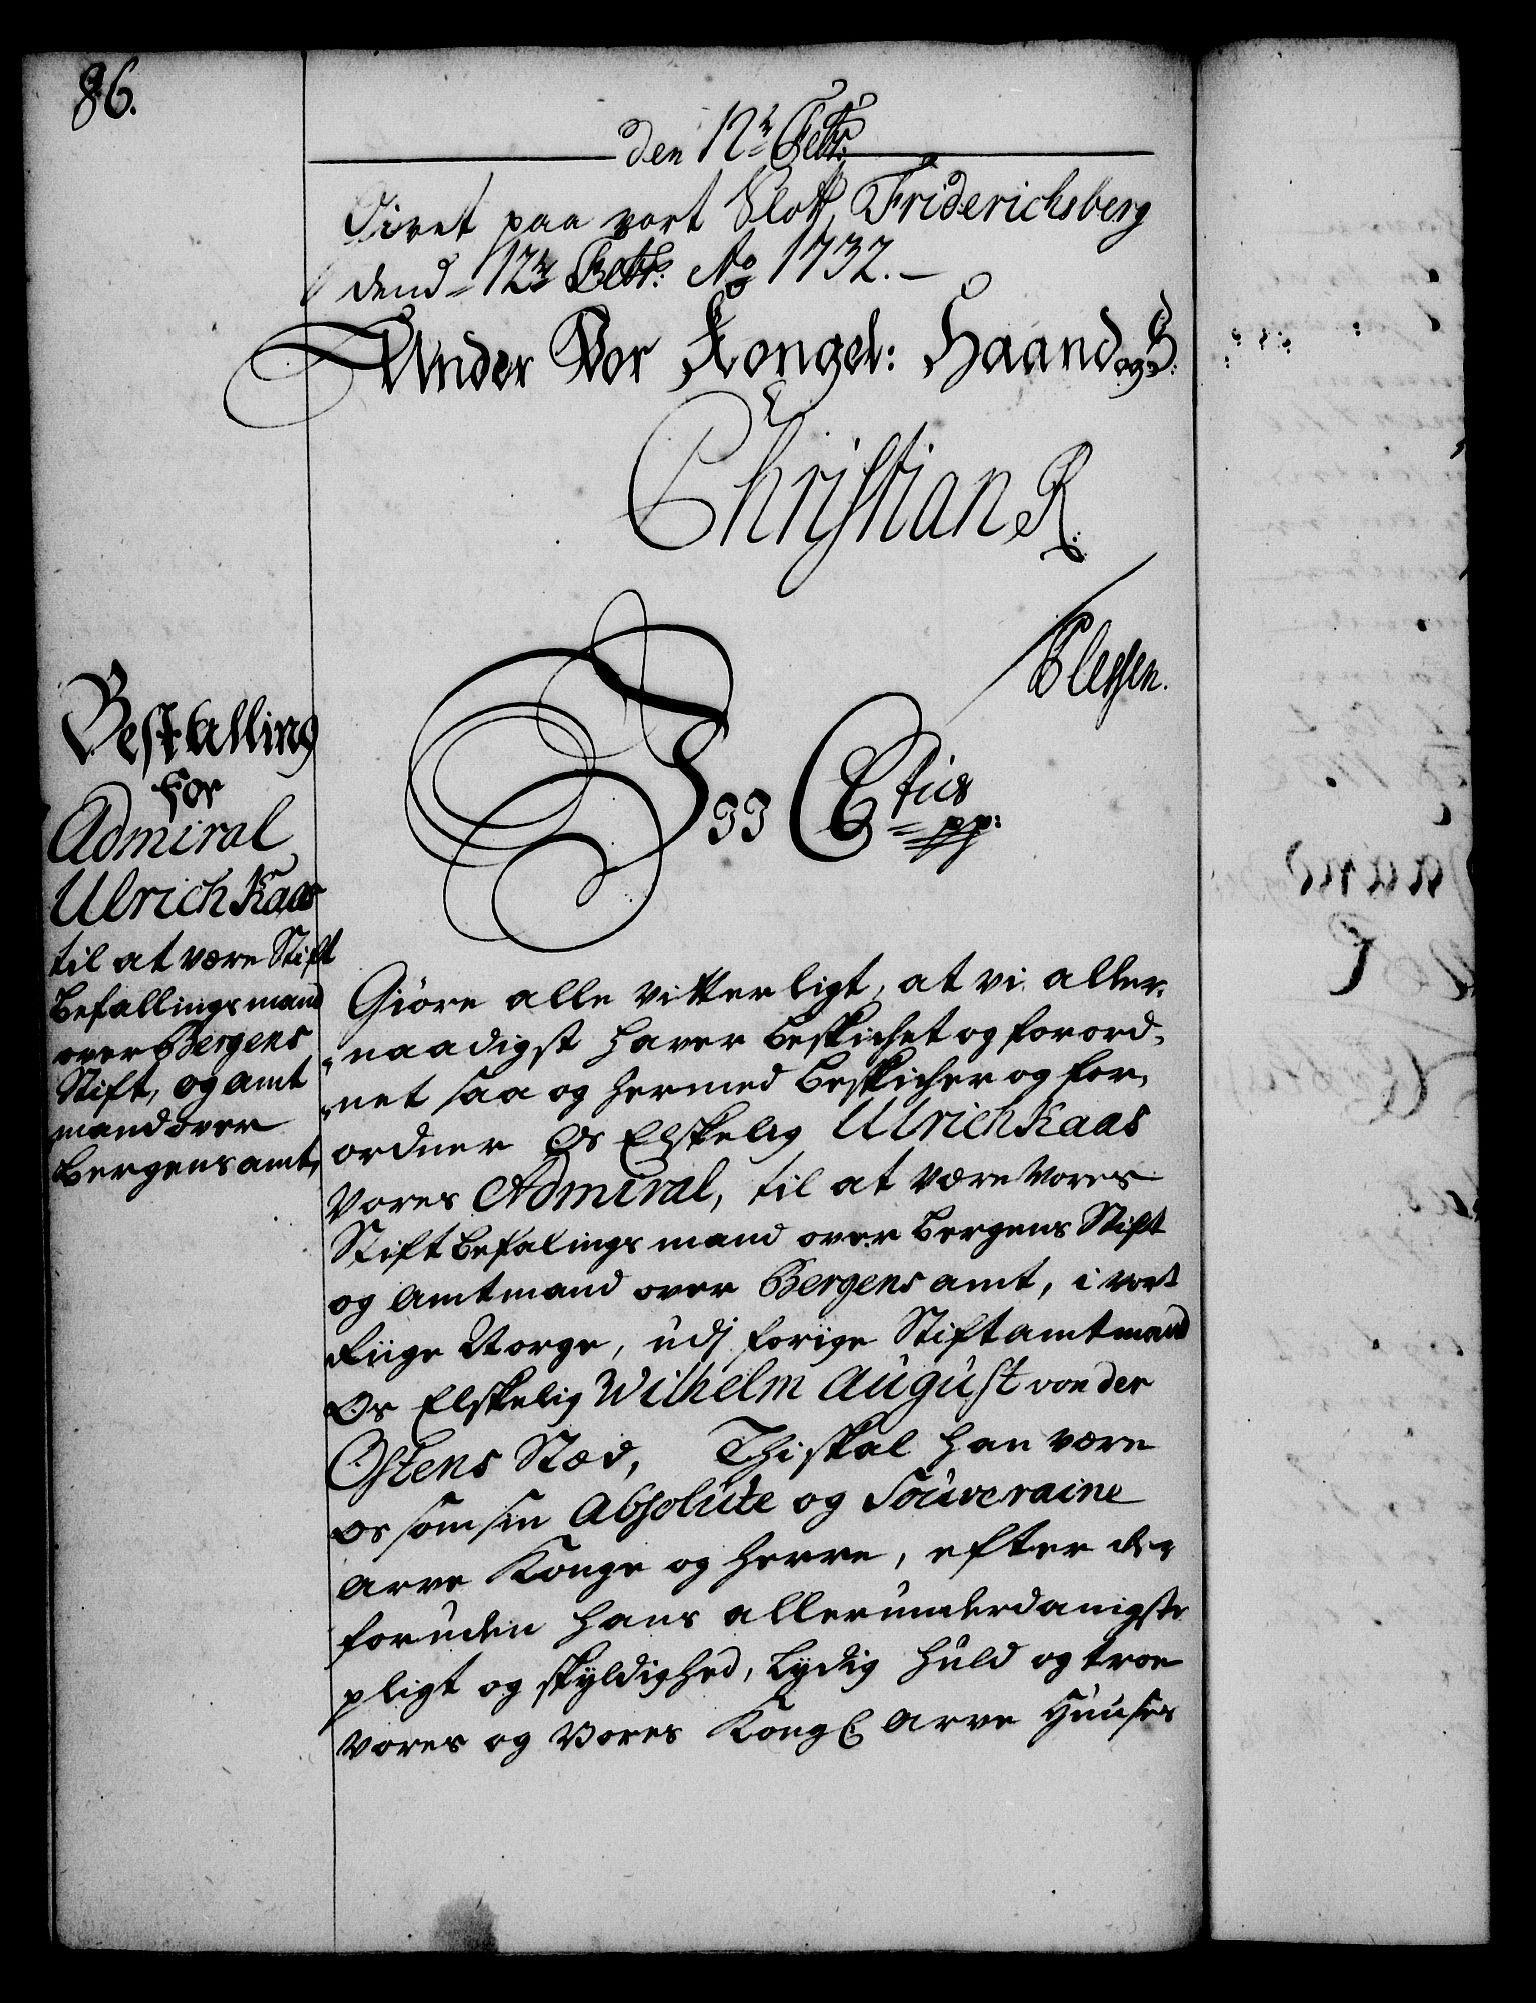 86.
den 12te Sebr:
Givet paa vort Slott, Friderichsberg
dend 12te Sebr: Ao 1732.
Under Vor Kongel: Haand og S:
Christian R.
Plessen.
Bestalling
for
Admiral
Ulrich Kaas
til at være Stift
Befallings mand
over Bergens
Stift, og amt
mand over
Bergens amt,
C 6tus pp:
Giøre alle vitterligt, at vi aller,,
,,naadigst haver beskichet og forord,,
,,net saa og hermed beskicher og for,,
ordner Os Elskelig Ulrich Kaas
Vores Admiral, til at være Vores
Stift befalings mand over Bergens Stift
og Amtmand over Bergens amt, i vort
Riige Norge, udj forige Stiftamtmand
Os Elskelig Wilhelm August von der
Ostens Stæd, Thi skal han være
os som sin Absolute og Souveraine
Arve Konge og Herre, efter den
foruden hans allerunderdanigste
pligt og skyldighed, Lydig huld og troe
Vores og Vores Kongl: Arve Huuses